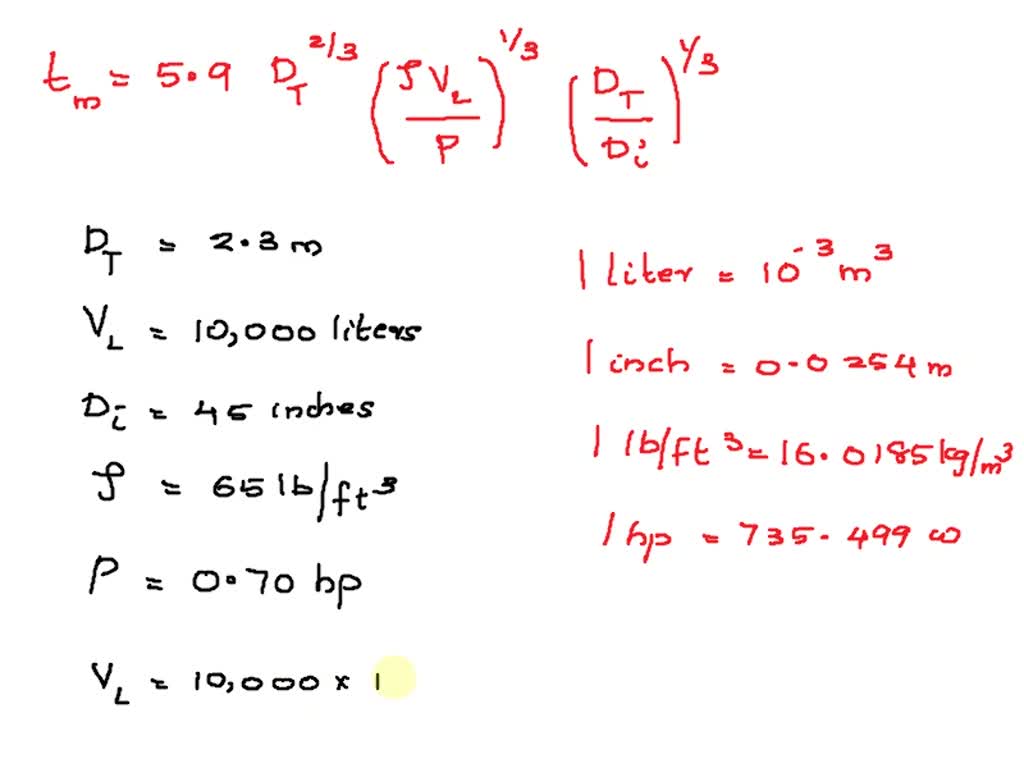 t_m = 5.9 D_T^2/3 (ρV_L/P)^1/3 (D_T/D_i)^1/3
D_T = 2.3 m
V_L = 10,000 liters
D_i = 45 inches
ρ = 65 lb/ft^3
P = 0.70 hp
V_L = 10,000 × 1
1 liter = 10^-3 m^3
1 inch = 0.0254 m
1 lb/ft^3 = 16.0185 kg/m^3
1 hp = 735.499 ω